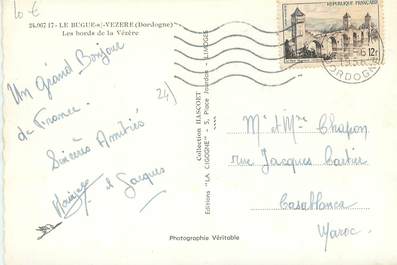 10 €
24.967 17 - LE BUGUE-s/-VEZERE (Dordogne)
Les bords de la Vézère
Un Grand Bonjour
de France.
Sincères Amitiés
et Jacques
24)
Photographie Véritable
Editions "LA CIGOGNE" - 5, Place Jourdan - LIMOGES
Collection HASCOET
REPUBLIQUE FRANÇAISE
12F
DORDOGNE
Mr et Mme Chapon
rue Jacques Cartier
Casablanca
Maroc.